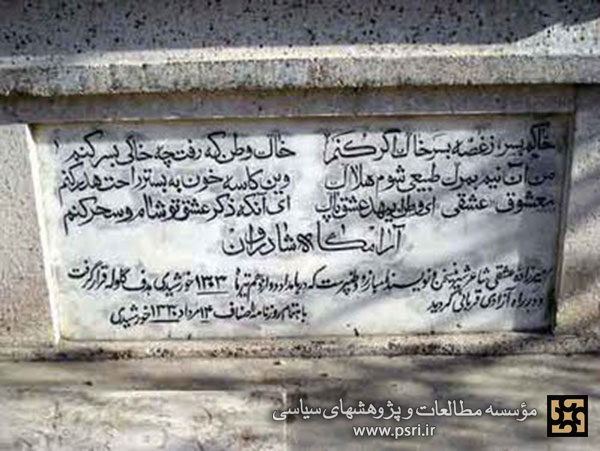 خاکم بسر، ز غصه بسر خاک اگر کنم خاک وطن که رفت چه خاکی بسر کنم
من آن نیم بمرگ طبیعی شوم هلاک وین کاسه خون به بستر راحت هدر کنم
معشوق «عشقی» ای وطن ای مهد عشق پاک ای آنکه ذکر عشق تو شام و سحر کنم
آرامگاه شادروان
میرزاده عشقی شاعر شیرین سخن و نویسنده مبارز و وطنپرست که در بامداد دوازدهم تیرماه ۱۳۰۳ خورشیدی هدف گلوله قرار گرفت
و در راه آزادی قربانی گردید
باهتمام روزنامه انصاف ۱۴ مرداد ۱۳۳۰ خورشیدی
مؤسسه مطالعات و پژوهشهای سیاسی
www.psri.ir